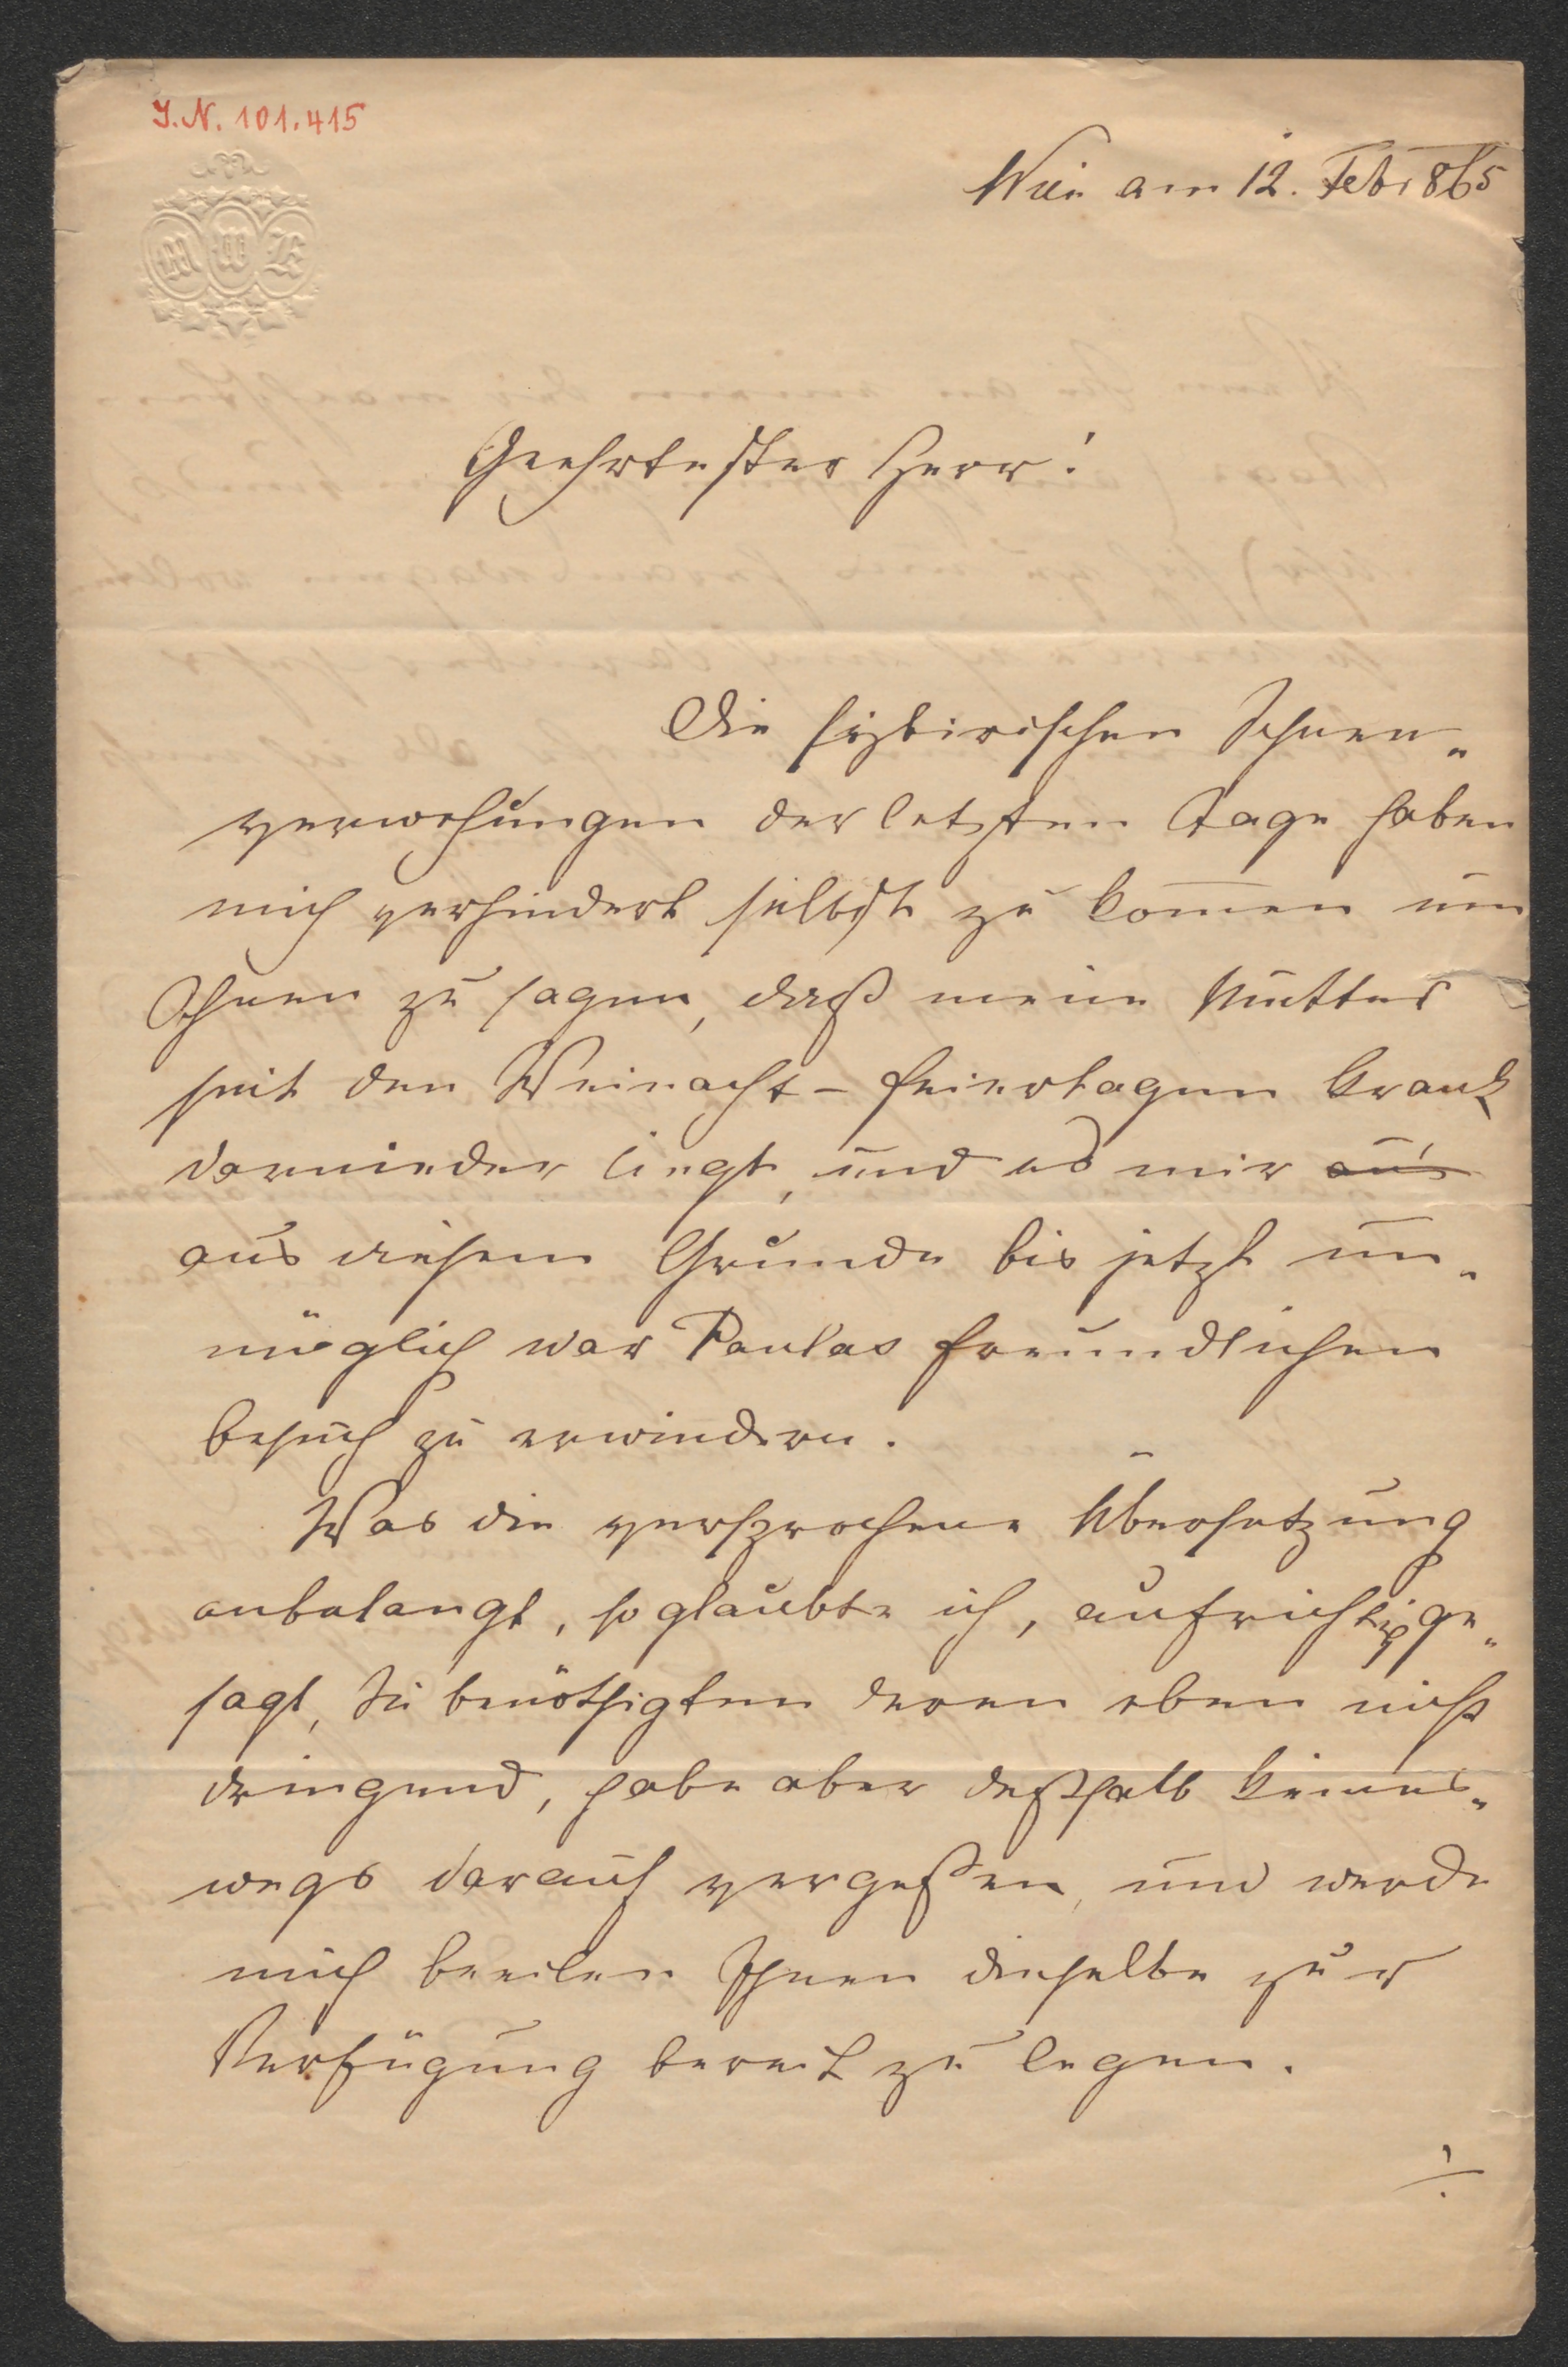 I.N. 101.415
Wien am 12. Feb. 865
Geehrtester Herr!
Die sizbirischen Schnee-
verwehungen der letzten Tage haben
mich verhindert selbst zu kom̅en um
Ihnen zu sagen, daß meine Mutter
seit den Weinacht-Feiertagen krank
darnieder liegt, und es mir aus
aus diesem Grunde bis jetzt un-
möglich war Paulas freundlichen
Besuch zu erwiedern.
Was die versprochene Übersetzung
anbelangt, so glaubte ich, aufrichtig ge-
sagt, Sie benöthigten deren eben nicht
dringend, habe aber deßhalb keines-
wegs darauf vergeßen, und werde
mich beeilen Ihnen dieselbe zur
Verfügung bereit zu legen.
./.